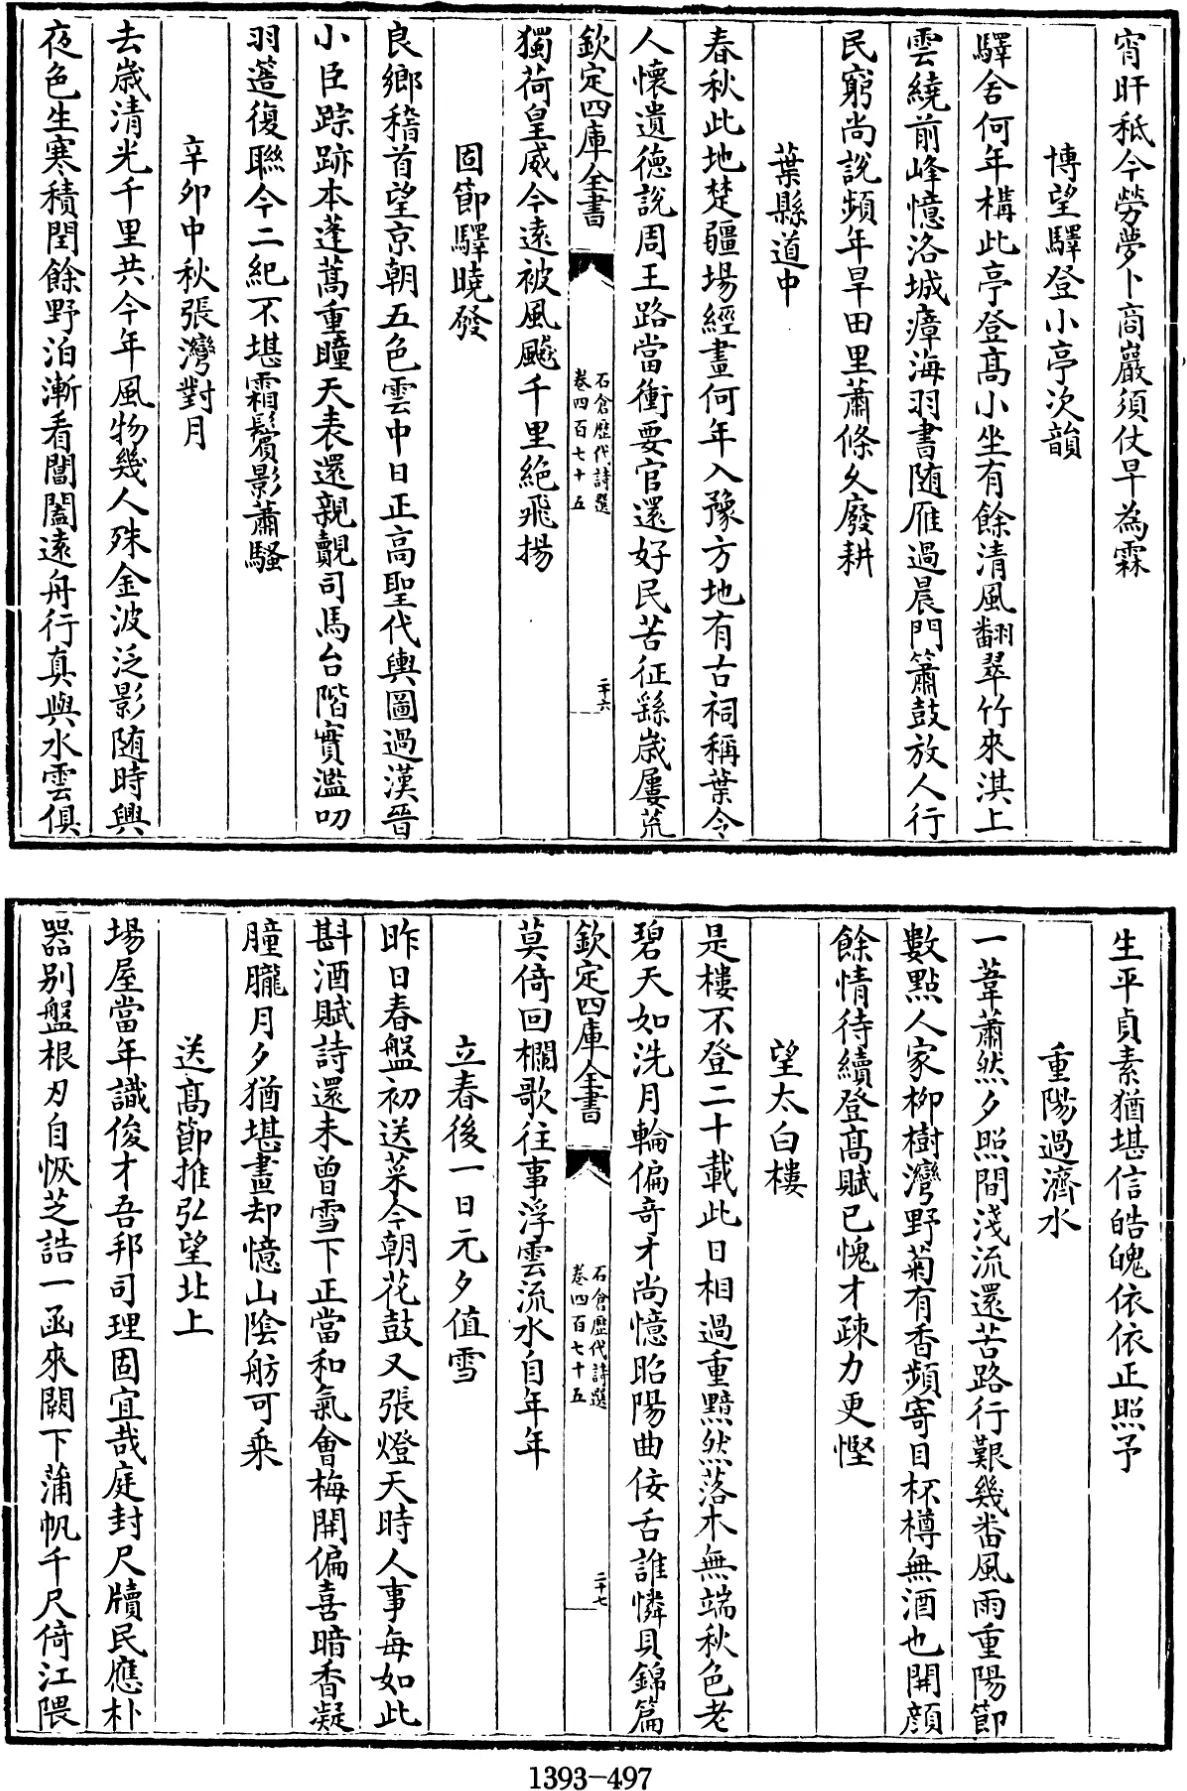 宵旰秪今勞夢卜商巖須仗早為霖
博望驛登小亭次韻
驛舍何年構此亭登髙小坐有餘清風翻翠竹來淇上
雲繞前峰憶洛城瘴海羽書随雁過晨門簫鼓放人行
民窮尚説頻年旱田里蕭條久廢耕
葉縣道中
春秋此地楚疆場經畫何年入豫方地有古祠稱葉令
人懷遺德說周王路當衝要官還好民苦征繇歲屢荒
欽定四庫全書
石倉歷代詩選
卷四百七十五
二十六
獨荷皇威今遠被風飈千里絶飛揚
固節驛曉發
良鄉稽首望京朝五色雲中日正高聖代輿圖過漢晉
小臣踪跡本蓬蒿重瞳天表還親覿司馬台階實濫叨
羽蓋復聯今二紀不堪霜鬢影蕭騷
辛卯中秋張灣對月
去歲清光千里共今年風物幾人殊金波泛影随時興
夜色生寒積閏餘野泊漸看闤闠遠舟行真與水雲俱
生平貞素猶堪信皓魄依依正照予
重陽過濟水
一葦蕭然夕照間淺流還苦路行艱幾畨風雨重陽節
數點人家栁樹灣野菊有香頻寄目杯樽無酒也開顔
餘情待續登髙賦已愧才疎力更慳
望太白樓
是樓不登二十載此日相過重黯然落木無端秋色老
碧天如洗月輪偏竒才尚憶昭陽曲佞舌誰憐貝錦篇
欽定四庫全書
石倉歷代詩選
卷四百七十五
二十七
莫倚回欄歌往事浮雲流水自年年
立春後一日元夕值雪
昨日春盤初送菜今朝花鼓又張燈天時人事每如此
斟酒賦詩還未曾雪下正當和氣會梅開偏喜暗香凝
朣朧月夕猶堪畫却憶山陰舫可乘
送髙節推弘望北上
場屋當年識俊才吾邦司理固宜哉庭封尺牘民應朴
器别盤根刃自恢芝誥一函來闕下蒲帆千尺倚江隈
1393-497